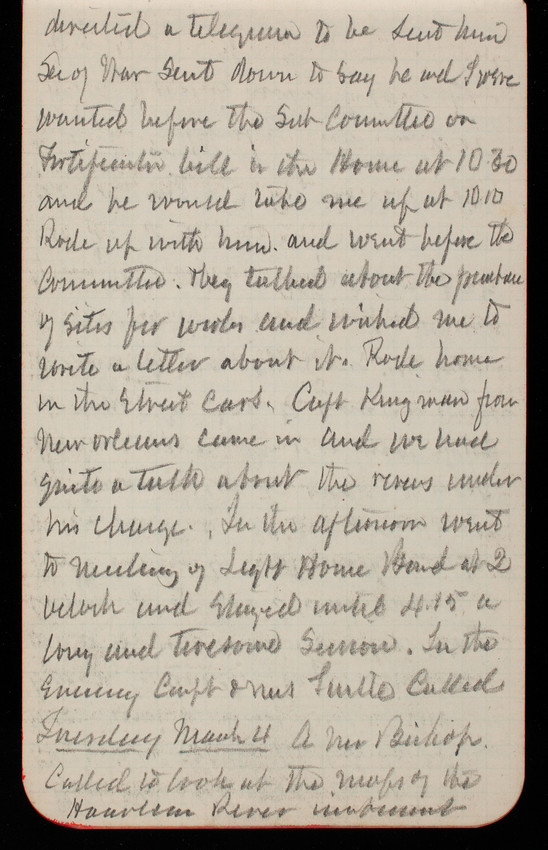 directed a telegram to be sent him
Sec of War sent down to say he and I were
wanted before the Sub-Committee on
Fortification bill in the House at 10-30
and he would take me up at 10 10
Rode up with him. and went before the
Committee. They talked about the purchase
of sites for works and wished me to
write a letter about it. Rode home
in the Street Cars. Capt Kingman from
New Orleans came in and we had
quite a talk about the rivers under
his charge. In the afternoon went
to meeting of Light House Board at 2
oclock and stayed until 4.15 a
long and tiresome session. In the
Evening Capt & Mrs Called
Tuesday March 4 A Mr Bishop.
Called to look at the maps of the
Haarlem River